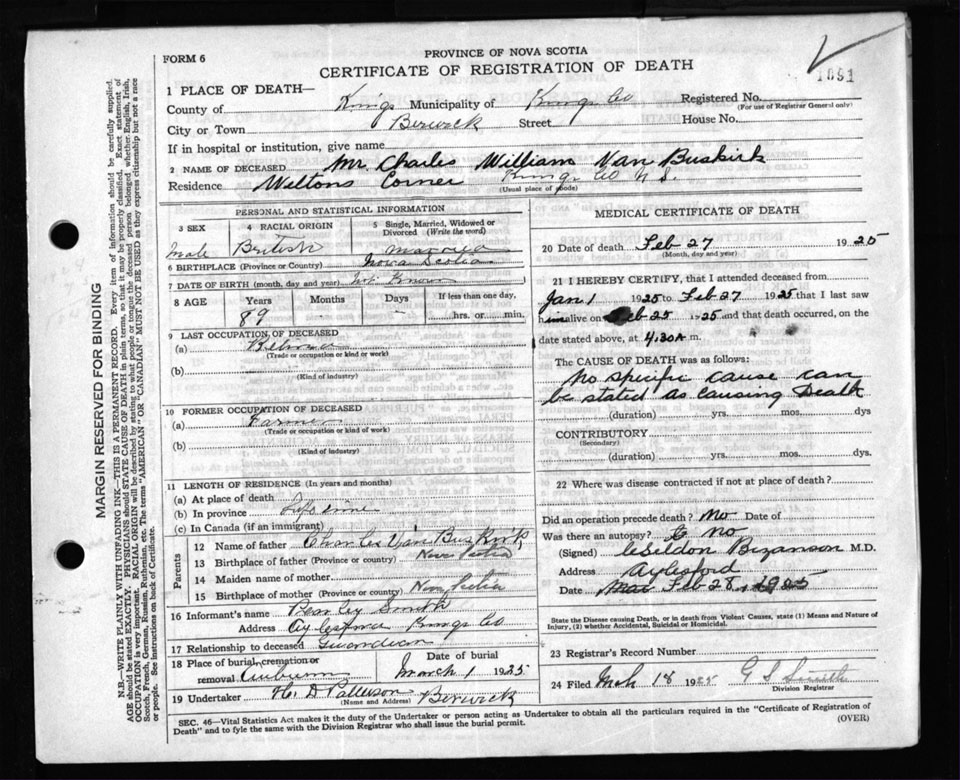 FORM 6
PROVINCE OF NOVA SCOTIA
CERTIFICATE OF REGISTRATION OF DEATH
1091
1 PLACE OF DEATH—
County of Kings Municipality of Kings Co Registered No.
(For use of Registrar General only)
City or Town Berwick Street House No.
If in hospital or institution, give name
2 NAME OF DECEASED Mr. Charles William Van Buskirk
Residence Weltons Corner Kings Co N S.
(Usual place of abode)
PERSONAL AND STATISTICAL INFORMATION
3 SEX
male
4 RACIAL ORIGIN
British
5 Single, Married, Widowed or Divorced (Write the word)
married
6 BIRTHPLACE (Province or Country) Nova Scotia
7 DATE OF BIRTH (month, day and year) Not Known
8 AGE Years Months Days If less than one day,
89 - hrs. or min.
9 LAST OCCUPATION OF DECEASED
(a)
(Trade or occupation or kind of work)
(b)
(Kind of industry)
10 FORMER OCCUPATION OF DECEASED
(a) Farmer
(Trade or occupation or kind of work)
(b)
(Kind of industry)
11 LENGTH OF RESIDENCE (In years and months)
(a) At place of death
(b) In province Life time
(c) In Canada (if an immigrant)
Parents
12 Name of father Charles Van Buskirk
13 Birthplace of father (Province or country) Nova Scotia
14 Maiden name of mother
15 Birthplace of mother (Province or country) Nova Scotia
16 Informant's name Pearley Smith
Address Aylesford Kings Co
17 Relationship to deceased Guardian
18 Place of burial, cremation or removal Auburn
Date of burial March 1 1925
19 Undertaker H. D Patterson Berwick
(Name and Address)
MEDICAL CERTIFICATE OF DEATH
20 Date of death Feb 27 1925
(Month, day and year)
21 I HEREBY CERTIFY, that I attended deceased from
Jan 1 1925 to Feb 27 1925 that I last saw
him alive on Feb 25 1925 and that death occurred, on the
date stated above, at 4.30 A m.
The CAUSE OF DEATH was as follows:
no specific cause can
be stated as causing Death
(duration) yrs. mos. dys
CONTRIBUTORY
(Secondary)
(duration) yrs. mos. dys.
22 Where was disease contracted if not at place of death?
Did an operation precede death? No Date of
Was there an autopsy? No
(Signed) Seldon Bezanson M.D.
Address Aylesford
Date Feb 28, 1925
State the Disease causing Death, or in death from Violent Causes, state (1) Means and Nature of Injury, (2) whether Accidental, Suicidal or Homicidal.
23 Registrar's Record Number
24 Filed Mch 18 1925 G S Smith
Division Registrar
SEC. 46—Vital Statistics Act makes it the duty of the Undertaker or person acting as Undertaker to obtain all the particulars required in the "Certificate of Registration of
Death" and to fyle the same with the Division Registrar who shall issue the burial permit.
(OVER)
MARGIN RESERVED FOR BINDING
N.B.—WRITE PLAINLY WITH UNFADING INK—THIS IS A PERMANENT RECORD. Every item of information should be carefully supplied.
AGE should be stated EXACTLY. PHYSICIANS should STATE CAUSE OF DEATH in plain terms, so that it may be properly classified. Exact statement of
OCCUPATION is very important. RACIAL ORIGIN will be described by stating to what people or tongue the deceased person belonged whether English, Irish,
Scotch, French, German, Russian, Ruthenian, etc. The terms "AMERICAN" OR "CANADIAN" MUST NOT BE USED as they express citizenship but not a race
or people. See instructions on back of Certificate.